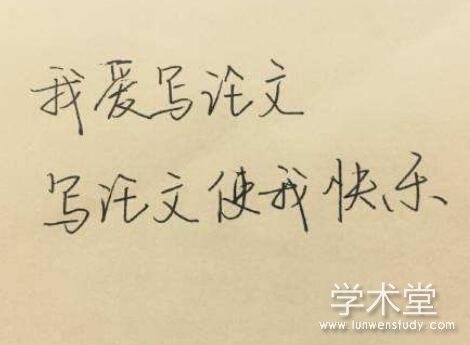 我爱写论文
写论文使我快乐
学术堂
www.lunwenstudy.com